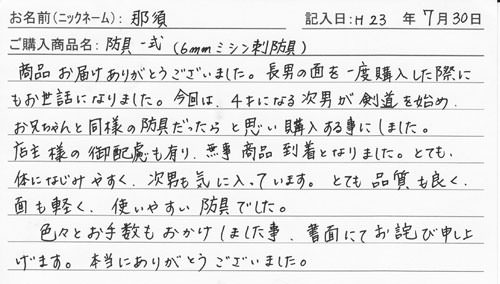 お名前(ニックネーム): 那須 記入日:H23 年7月30日
ご購入商品名: 防具一式(6mmミシン刺防具)
商品お届けありがとうございました。長男の面を一度購入した際に
もお世話になりました。今回は、4才になる次男が剣道を始め、
お兄ちゃんと同様の防具だったらと思い購入する事にしました。
店主様の御配慮も有り、無事商品到着となりました。とても、
体になじみやすく、次男も気に入っています。とても品質も良く、
面も軽く、使いやすい防具でした。
色々とお手数もおかけしました事、書面にてお詫び申し上
げます。本当にありがとうございました。